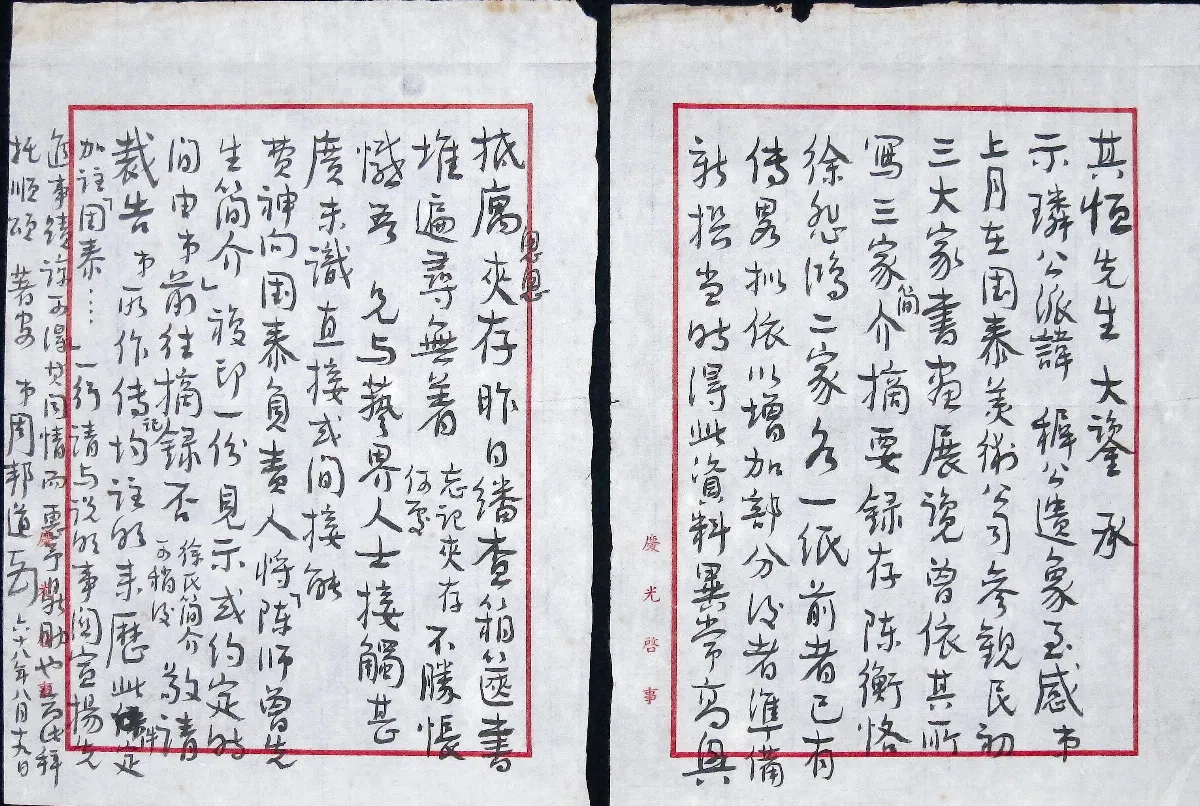 其恒先生大鑒 承
示璘公派諱 樨公遺象至感 弟
上月在国泰美術公司參觀民初
三大家書画展覽曾依其所
寫三家簡介摘要録存陈衡恪
徐悲鴻二家各一纸前者已有
傳畧拟依以增加部分後者準備
新撰当時得此資料異常高興
慶光啓事
抵寓夾存 昨日繙查箱篋書
匆匆
堆遍尋無着 忘記夾存何處 不勝悵
憾 吾 兄与藝界人士接觸甚
廣未識直接或间接能
费神向国泰負責人將「陈师曾先
生簡介」複印一份見示或约定時
间由弟前往摘録否 徐氏簡介可稍後 敬請
裁告 弟所作傳記均註明来歴此件定
加註「国泰…」一行请与说明事闗宣揚先
進事蹟諒可得其同情而惠予 助也 拜
托順頌 著安 弟周邦道 六十八年八月十九日